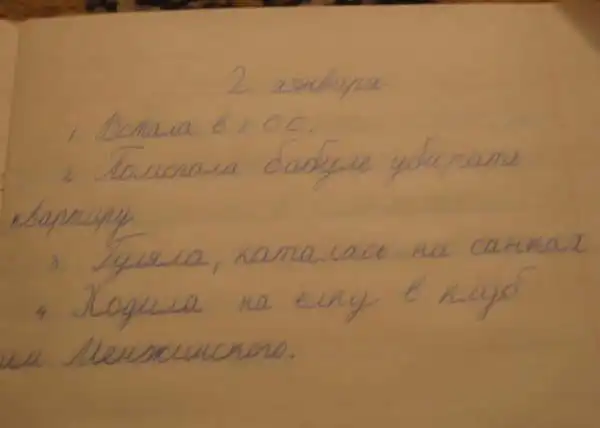 2 января
1. Встала в
2. Помогала бабуле убирать
квартиру
3. Гуляла, каталась на санках
4. Ходила на елку в клуб
им Менжинского.